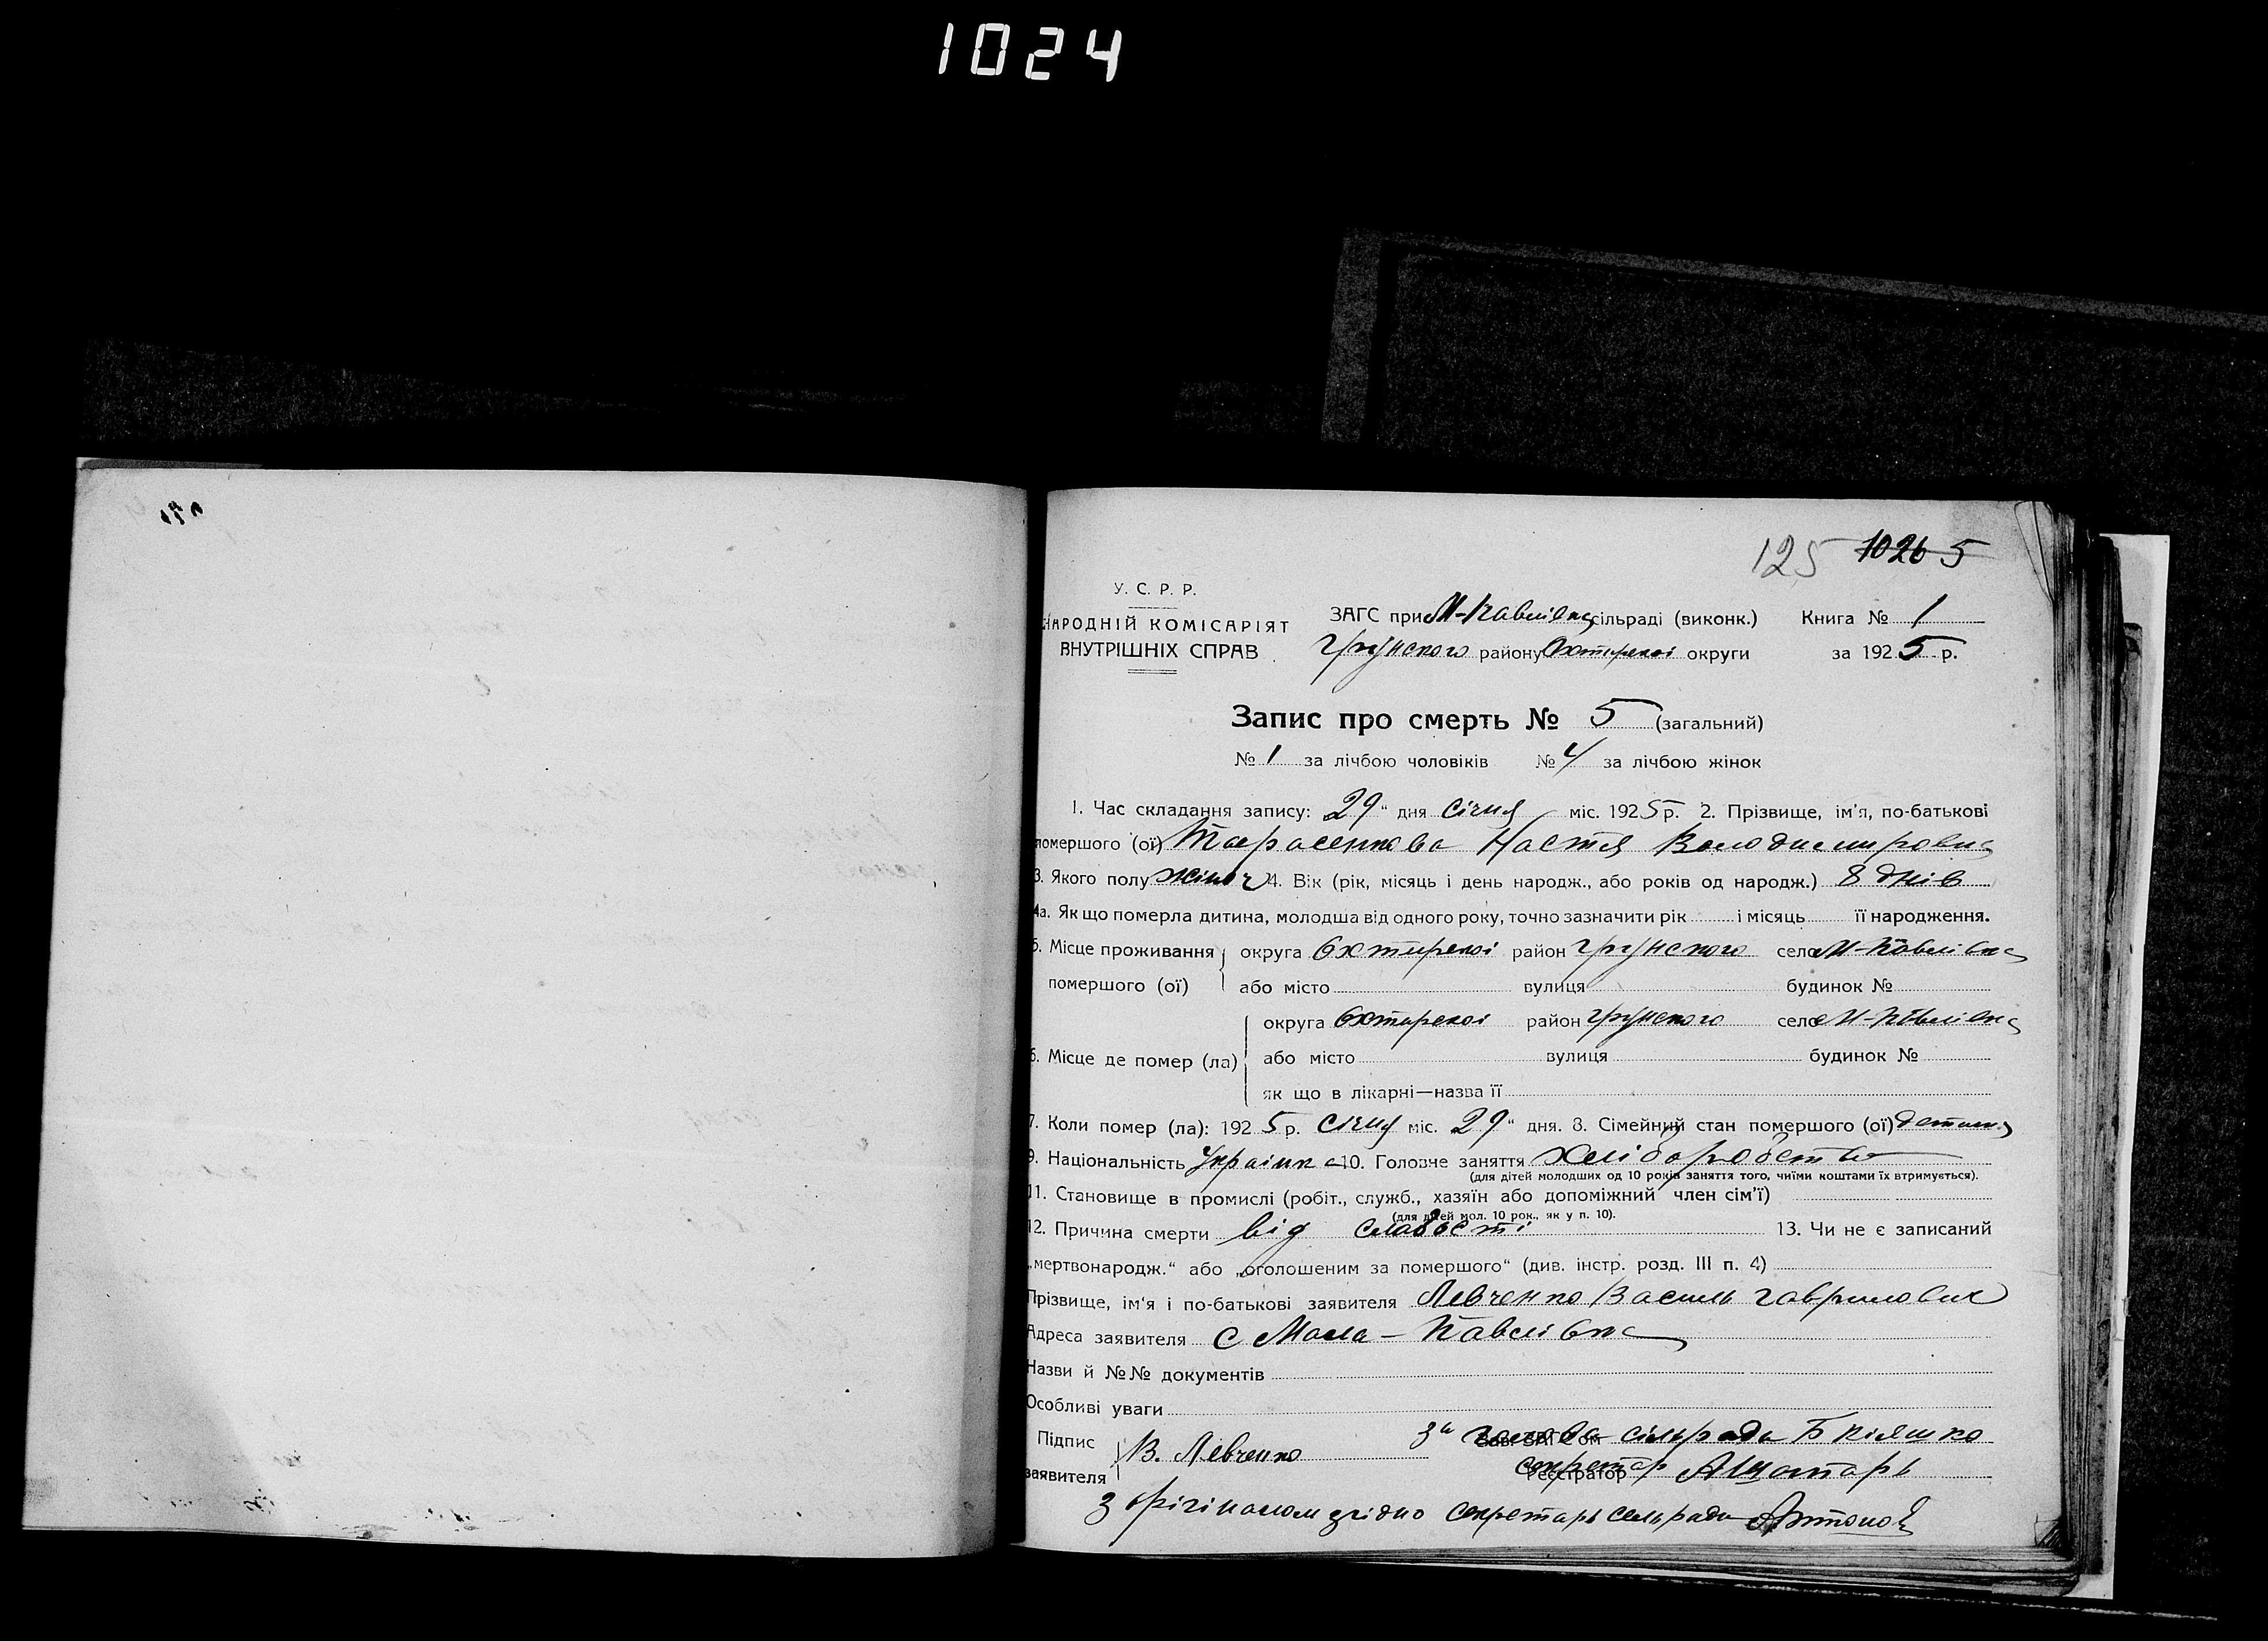 1024
125 1026 5
У. С. Р. Р.
НАРОДНІЙ КОМІСАРІЯТ
ВНУТРІШНІХ СПРАВ
ЗАГС при М-Павлівц сільраді (виконк.) Книга № 1
Грунского району Охтирскоі округи за 1925 р.
Запис про смерть № 5 (загальний)
№ 1 за лічбою чоловіків № 4 за лічбою жінок
1. Час складання запису: 29" дня січня міс. 1925 р. 2. Прізвище, ім'я, по-батькові
помершого (ої) Тарасенкова Настя Володимировна
3. Якого полу жіноч 4. Вік (рік, місяць і день народж., або років од народж.) 8 днів
4а. Як що померла дитина, молодша від одного року, точно зазначити рік і місяць її народження.
5. Місце проживання округа Охтирскоі район Грунского село М-Павлівка
помершого (ої) або місто вулиця будинок №
округа Охтирскоі район Грунского село М-Павлівка
6. Місце де помер (ла) або місто вулиця будинок №
як що в лікарні—назва її
7. Коли помер (ла): 1925 р. січня міс. 29" дня. 8. Сімейний стан помершого (ої)
9. Національність Українка 10. Головне заняття хліборобство
(для дітей молодших од 10 років заняття того, чиїми коштами їх втримується).
11. Становище в промислі (робіт., служб., хазяїн або допоміжний член сім'ї)
(для дітей мол. 10 рок., як у п. 10).
12. Причина смерти від слабості 13. Чи не є записаний
„мертвонародж.“ або „оголошеним за помершого“ (див. інстр. розд. III п. 4)
Прізвище, ім'я і по-батькові заявителя Левченко Василь Гаврилович
Адреса заявителя с Мала-Павлівка
Назви й №№ документів
Особливі уваги
Підпис заявителя В. Левченко
За голова сільради Б Кіяшко
Реєстратор секретар
З орігіналом згідно секретарь сельради